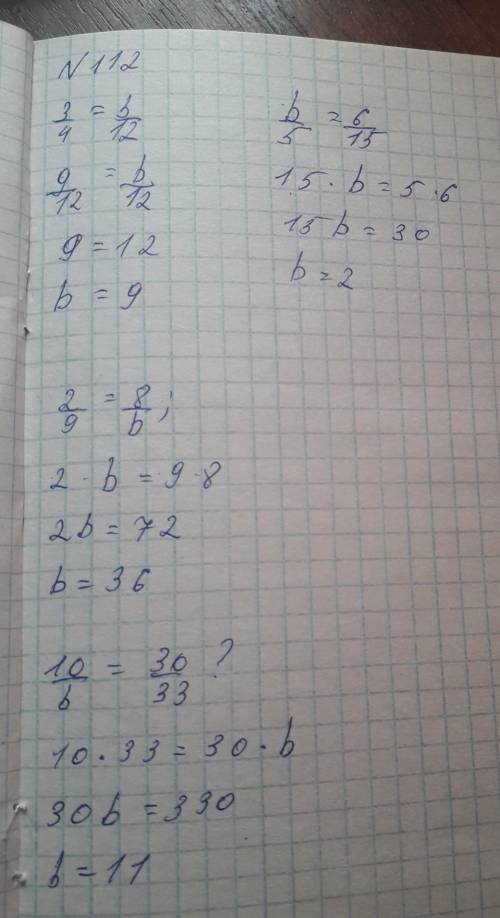 N112
3/4 = b/12
9/12 = b/12
9 = 12
b = 9
b/5 = 6/15
15 · b = 5 · 6
15b = 30
b = 2
2/9 = 8/b;
2 · b = 9 · 8
2b = 72
b = 36
10/b = 30/33 ?
10 · 33 = 30 · b
30b = 330
b = 11